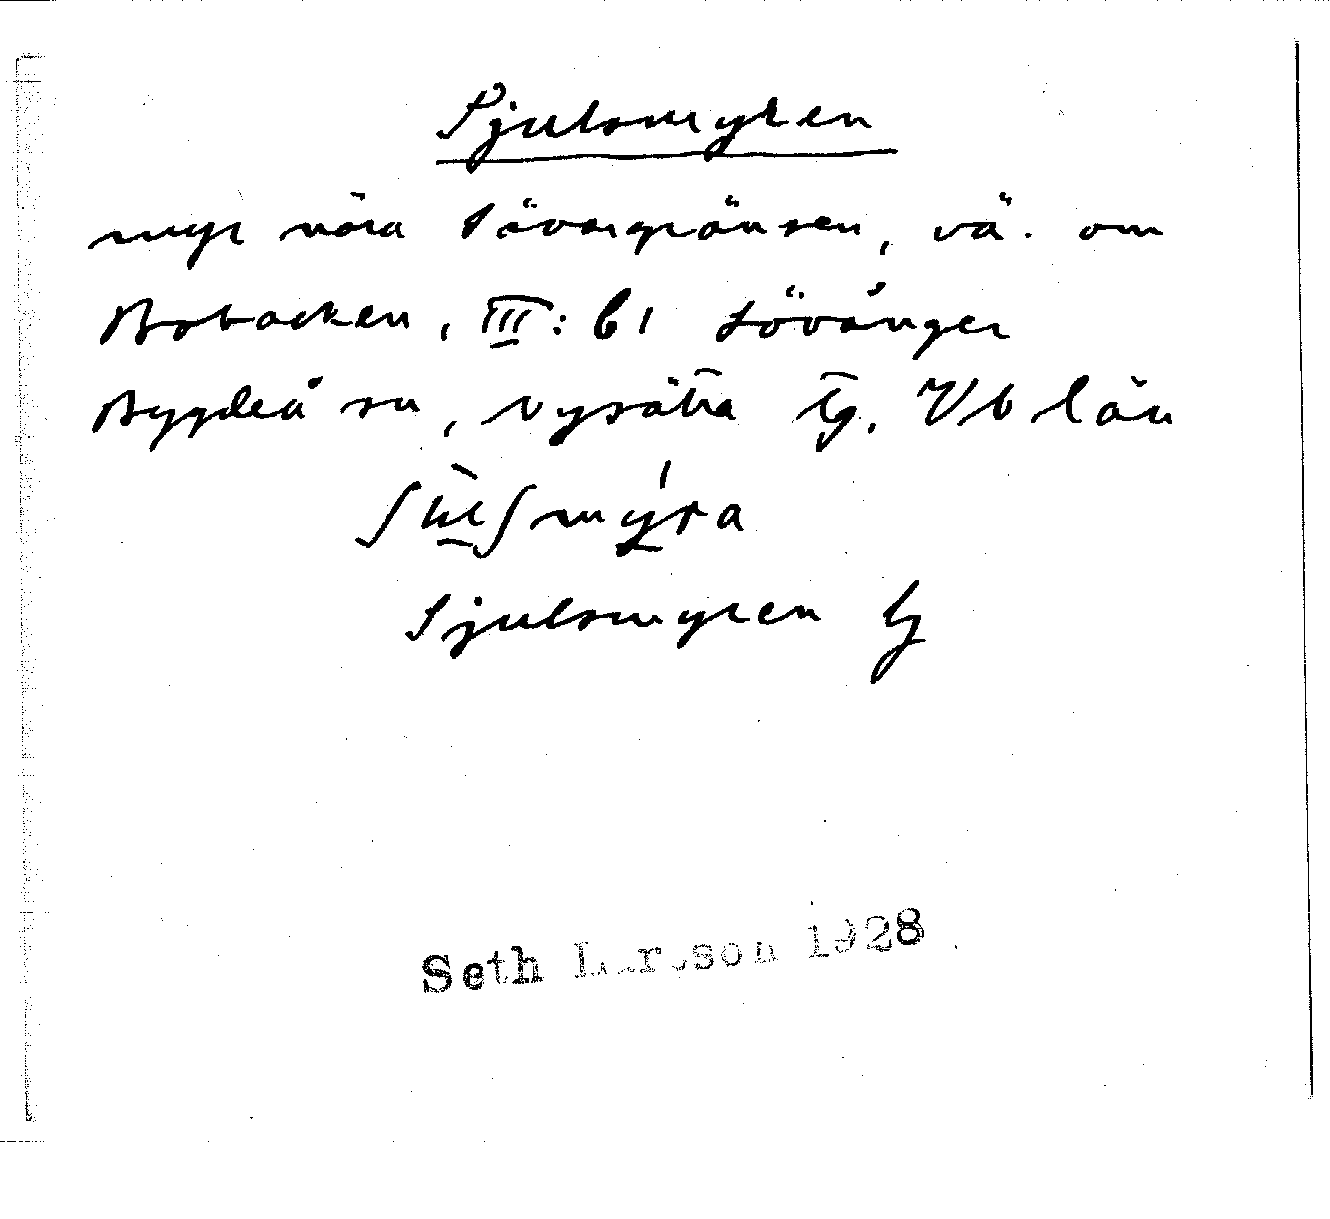 Sjulsmyren
myr nära Sävargränsen, vä. om
Bobacken, III: b1 Lövånger
Bygdeå sn, Nysätra tg. Vb län
Sjulsmyren lj
Seth Larsson 1928